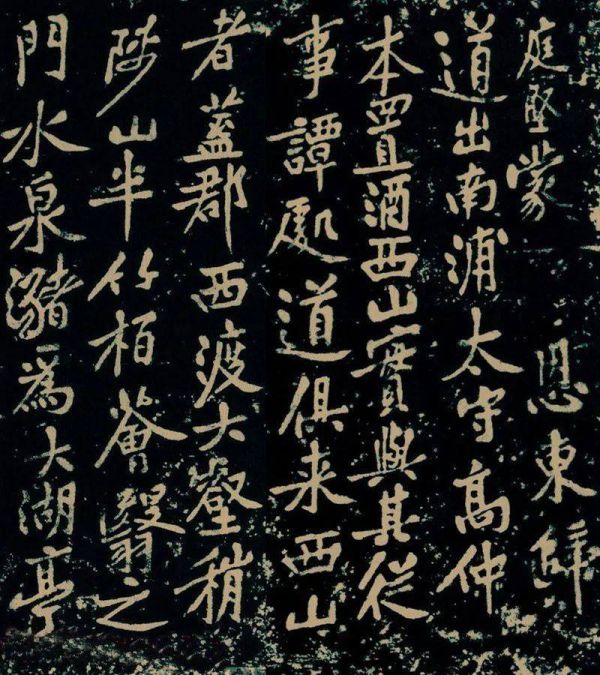 庭堅蒙 恩東歸
道出南浦太守高仲
本置酒西山實與其從
事譚處道俱来西山
者蓋郡西渡大壑稍
陟山半竹柏薈翳之
門水泉瀦爲大湖亭